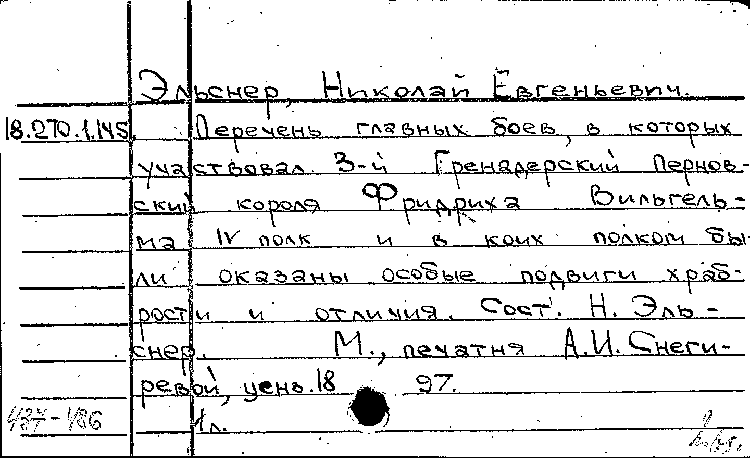 Эльснер, Николай Евгеньевич.
18.270.1.145. Перечень главных боев, в которых
участвовал 3-й Гренадерский Пернов-
ский короля Фридриха Вильгель-
ма IV полк и в коих полком бы-
ли оказаны особые подвиги храб-
рости и отличия. Сост. Н. Эль-
снер. М., печатня А.И. Снеги-
ревой, ценз. 18 97.
1л.